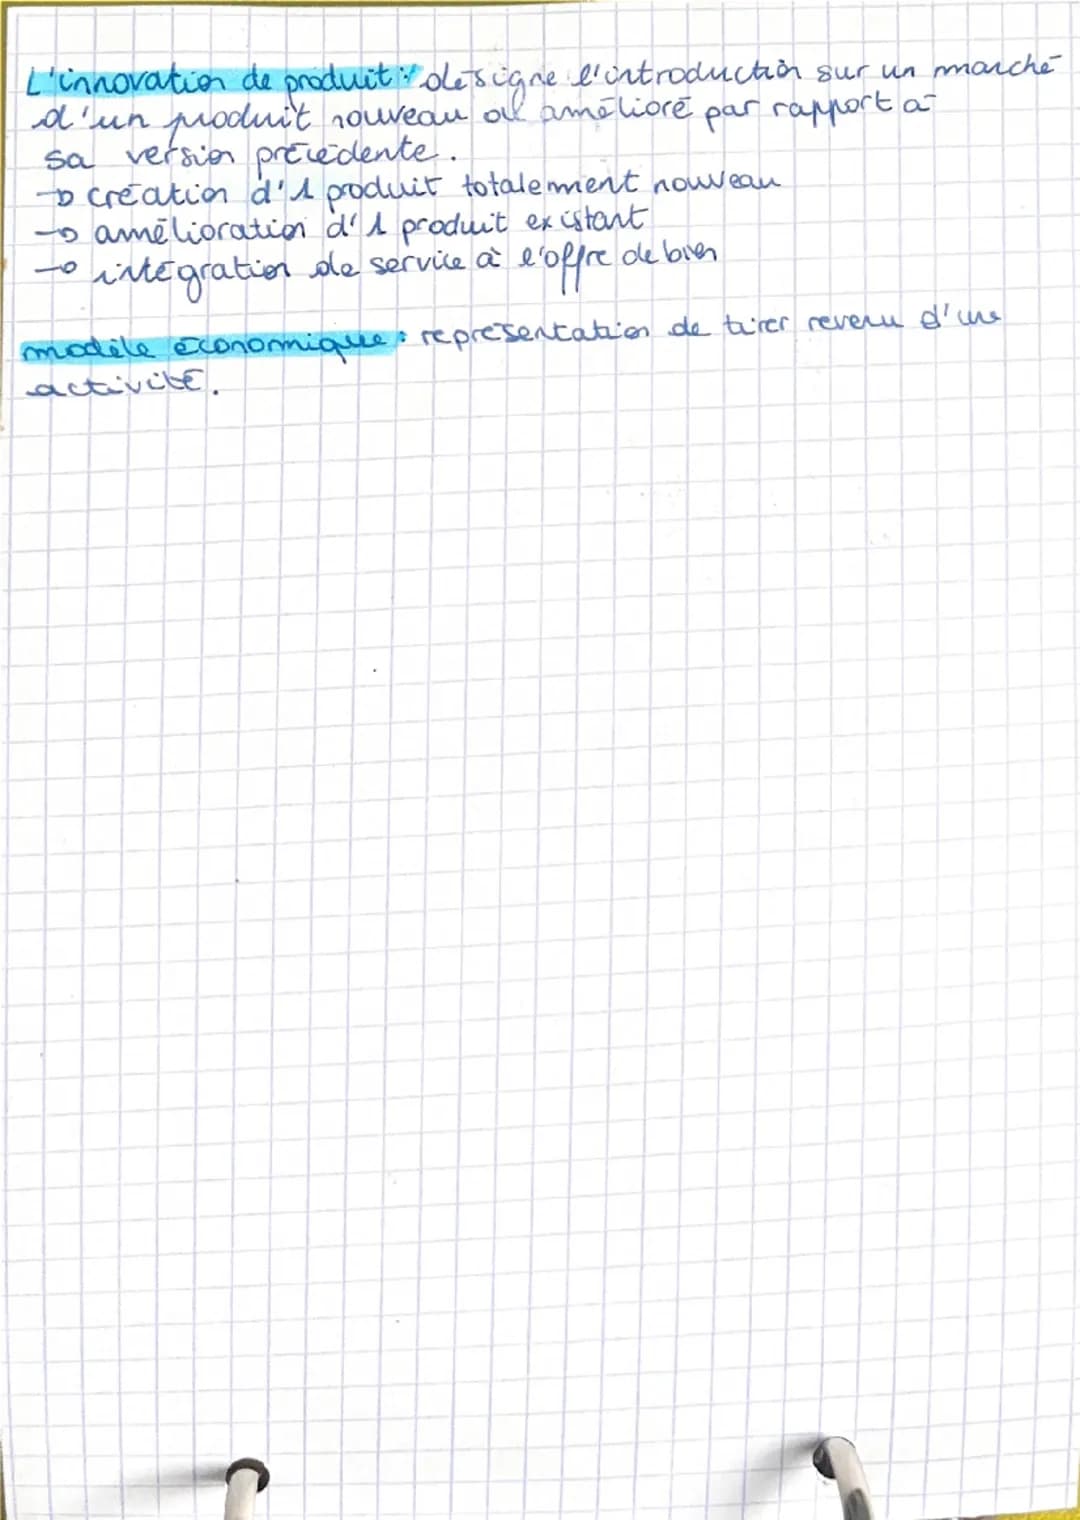 L'innovation de produit : désigne l'introduction sur un marché
d'un produit nouveau ou amélioré par rapport à
sa version précédente.
→ création d'1 produit totalement nouveau
→ amélioration d'1 produit existant
→ intégration de service à l'offre de bien
modèle économique : représentation de tirer revenu d'une
activité.